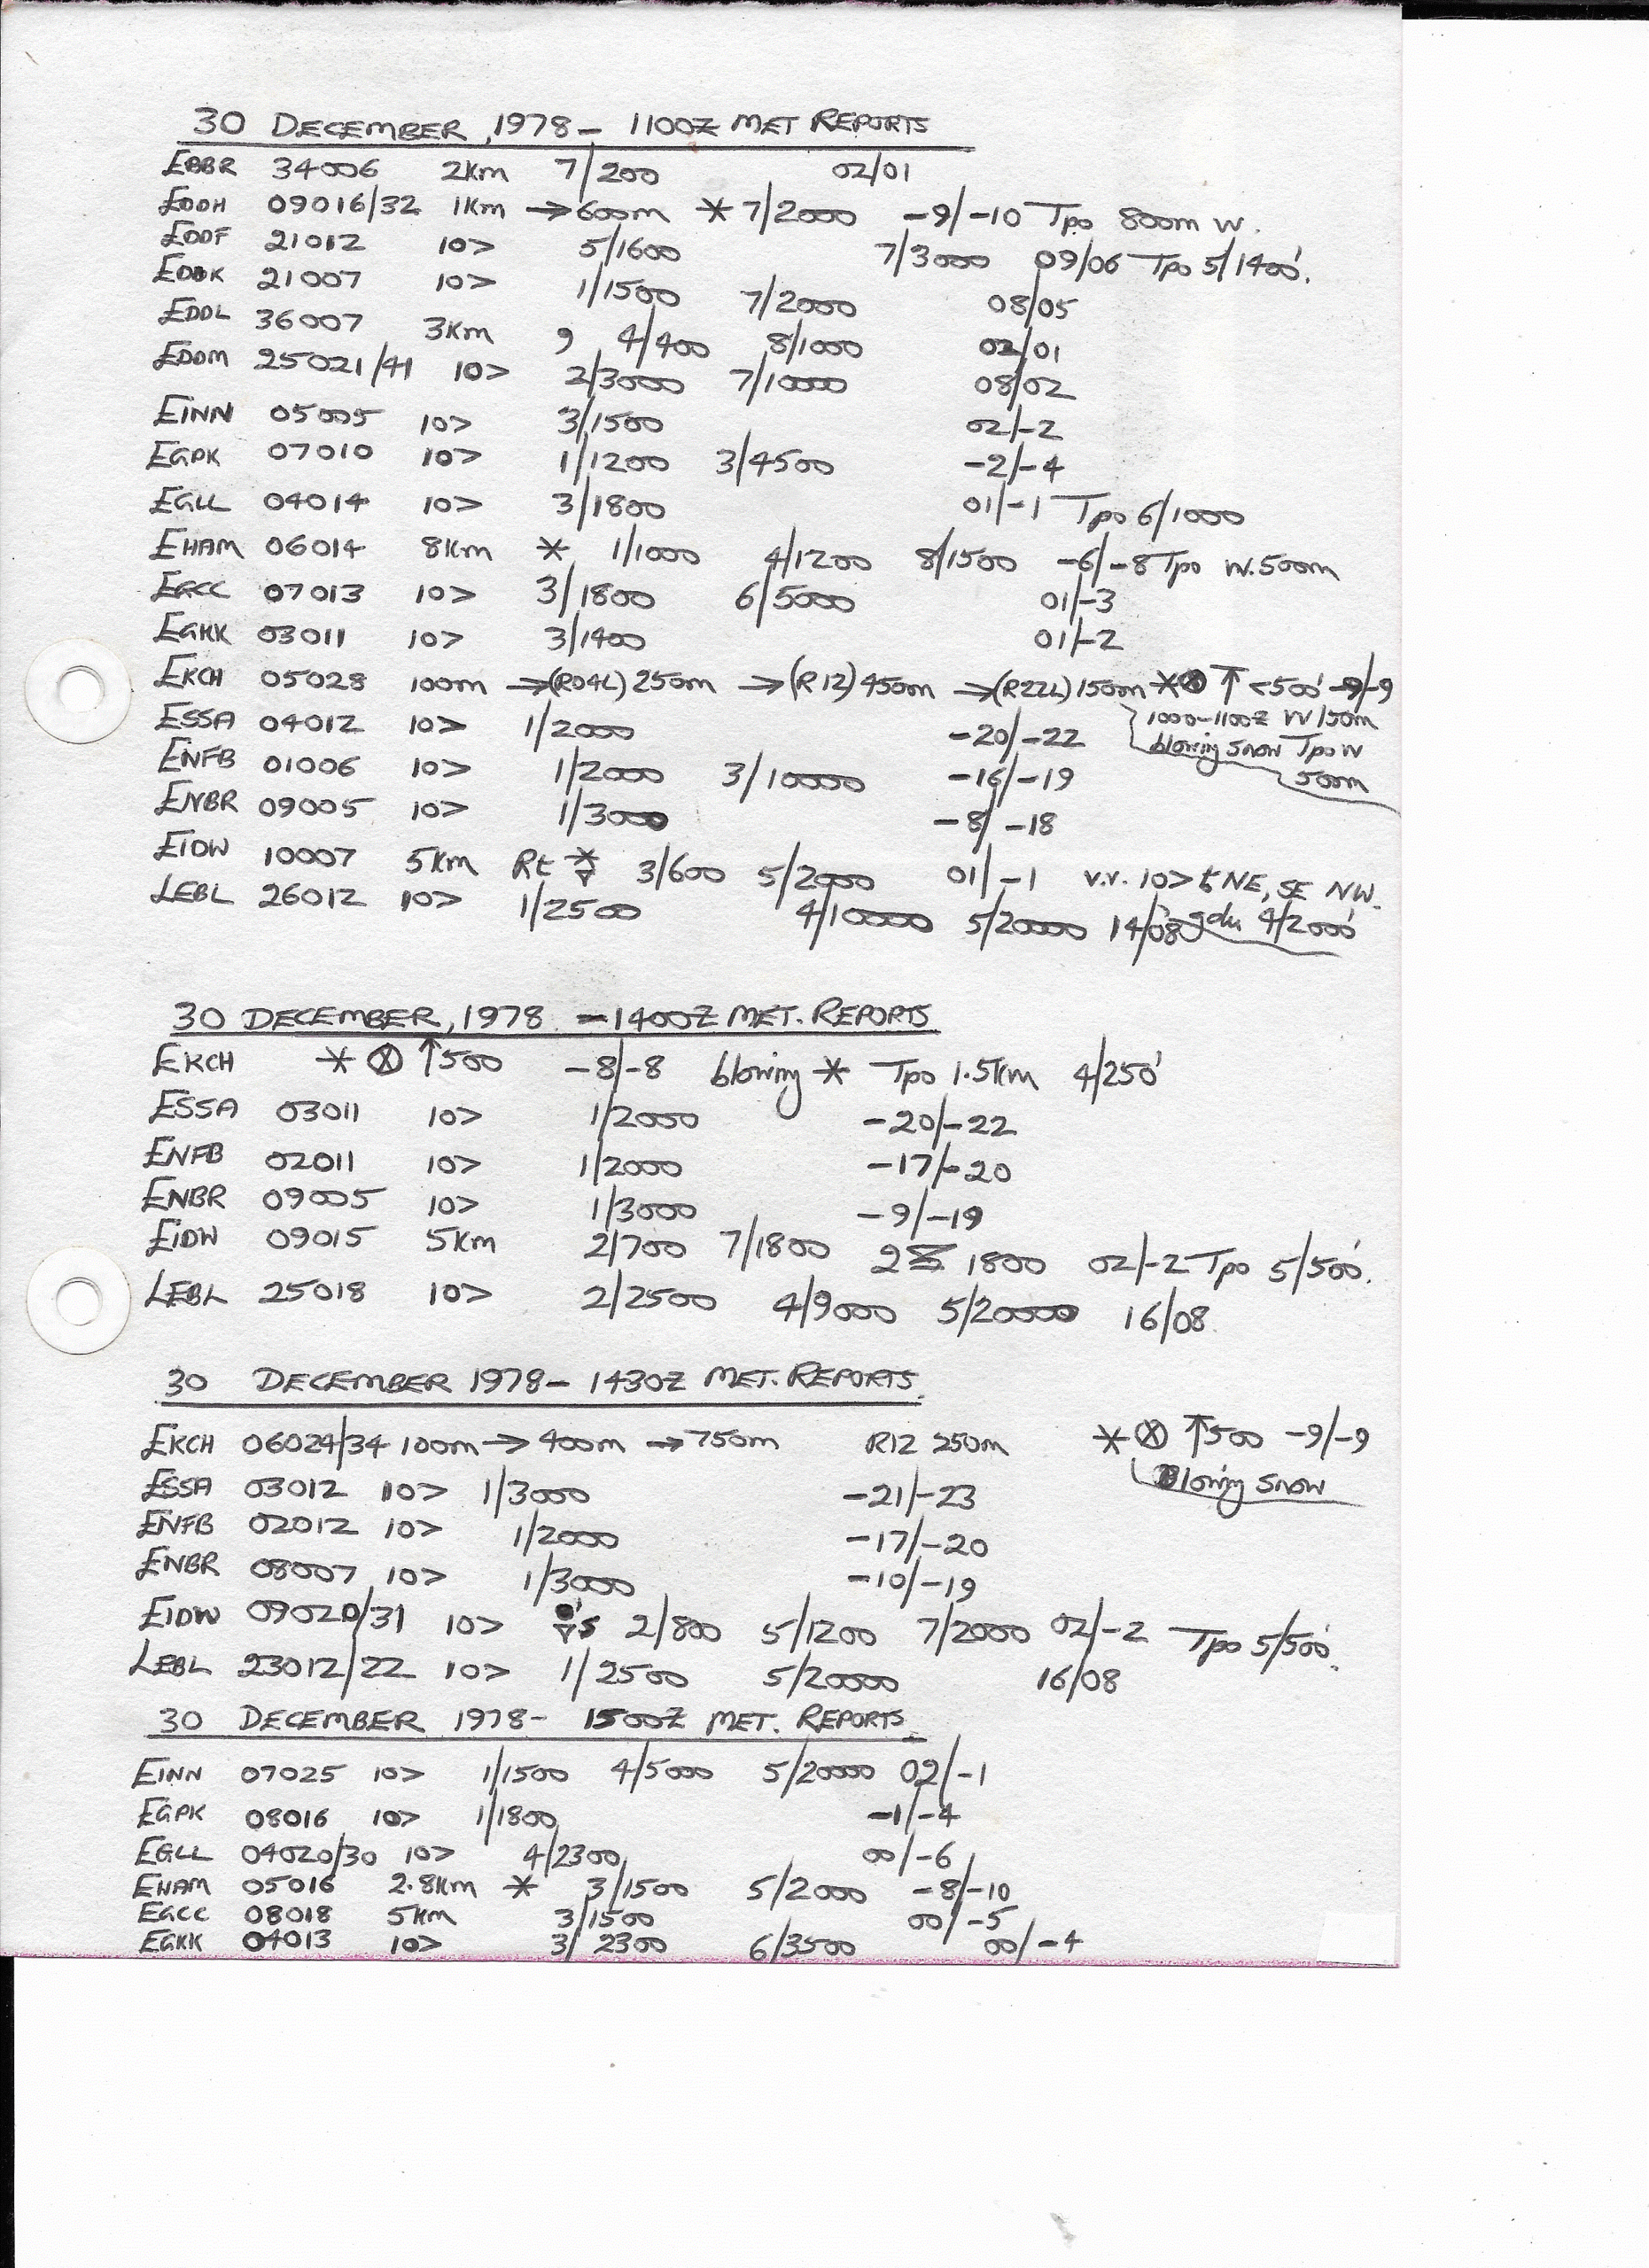 30 DECEMBER, 1978 - 1100Z MET REPORTS
EBBR 34006 2km 7/200 02/01
EDDH 09016/32 1km → 600m * 7/2000 -9/-10 Tpo 800m W.
EDDF 21012 10> 5/1600 7/3000 09/06 Tpo 5/1400'.
EDDK 21007 10> 1/1500 7/2000 08/05
EDDL 36007 3km 9 4/400 8/1000 02/01
EDDM 25021/41 10> 2/3000 7/10000 08/02
EINN 05005 10> 3/1500 02/-2
EGPK 07010 10> 1/1200 3/4500 -2/-4
EGLL 04014 10> 3/1800 01/-1 Tpo 6/1000
EHAM 06014 8km * 1/1000 4/1200 8/1500 -6/-8 Tpo W.500m
EGCC 07013 10> 3/1800 6/5000 01/-3
EGKK 03011 10> 3/1400 01/-2
EKCH 05028 100m → (R04L) 250m → (R12) 450m → (R22L) 150m * ⊗ ↑ <500' -9/-9
1000-1100Z W 150m
blowing snow Tpo W
500m
ESSA 04012 10> 1/2000 -20/-22
ENFB 01006 10> 1/2000 3/10000 -16/-19
ENBR 09005 10> 1/3000 -8/-18
EIDW 10007 5km Rt * ▽ 3/600 5/2000 01/-1 v.v. 10> to NE, SE NW.
LEBL 26012 10> 1/2500 4/10000 5/20000 14/08 gdu 4/2000'
30 DECEMBER, 1978 - 1400Z MET. REPORTS
EKCH * ⊗ ↑500 -8/-8 blowing * Tpo 1.5km 4/250'
ESSA 03011 10> 1/2000 -20/-22
ENFB 02011 10> 1/2000 -17/-20
ENBR 09005 10> 1/3000 -9/-19
EIDW 09015 5km 2/700 7/1800 1800 02/-2 Tpo 5/500'.
LEBL 25018 10> 2/2500 4/9000 5/20000 16/08.
30 DECEMBER 1978 - 1430Z MET. REPORTS.
EKCH 06024/34 100m → 400m → 750m R12 250m * ⊗ ↑500 -9/-9
Blowing snow
ESSA 03012 10> 1/3000 -21/-23
ENFB 02012 10> 1/2000 -17/-20
ENBR 08007 10> 1/3000 -10/-19
EIDW 09020/31 10> ▽'s 2/800 5/1200 7/2000 02/-2 Tpo 5/500'.
LEBL 23012/22 10> 1/2500 5/20000 16/08
30 DECEMBER 1978 - 1500Z MET. REPORTS.
EINN 07025 10> 1/1500 4/5000 5/20000 02/-1
EGPK 08016 10> 1/1800 -1/-4
EGLL 04020/30 10> 4/2300 00/-6
EHAM 05016 2.8km * 3/1500 5/2000 -8/-10
EGCC 08018 5km 3/1500 00/-5
EGKK 04013 10> 3/2300 6/3500 00/-4